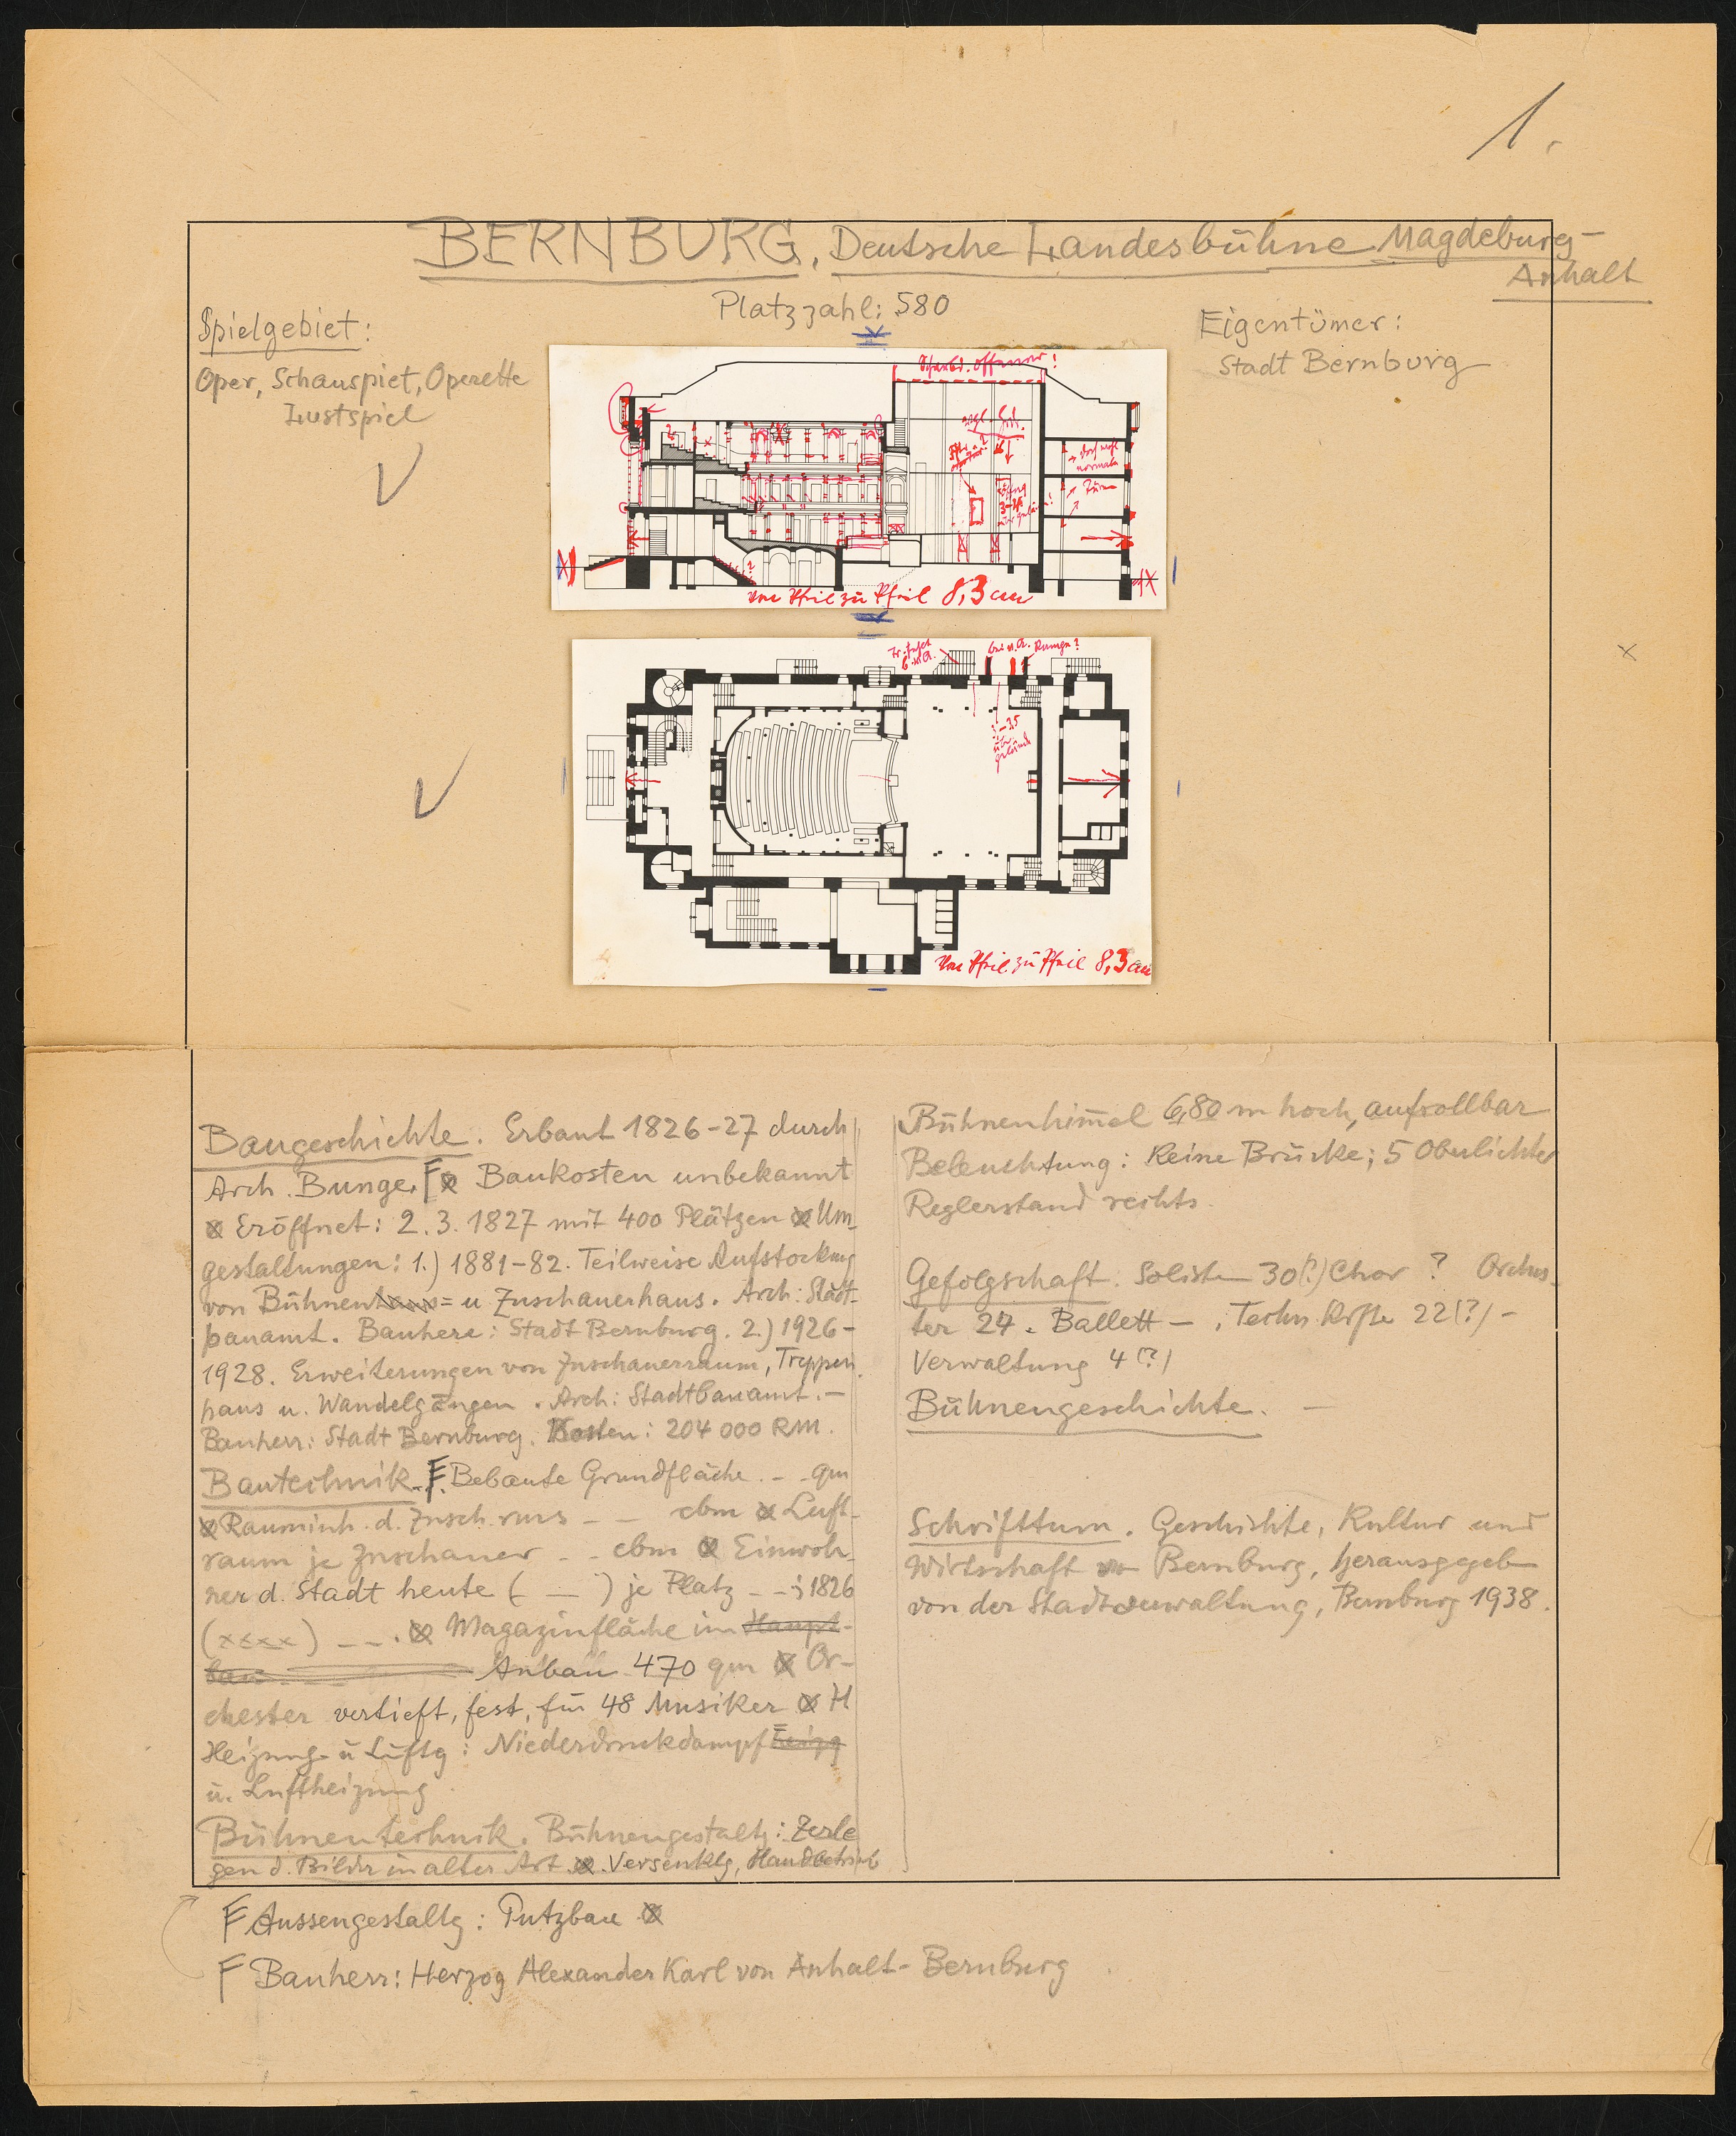 1.
BERNBURG, Deutsche Landesbühne Magdeburg-
Anhalt
Platzzahl: 580
Spielgebiet:
Oper, Schauspiel, Operette
Lustspiel
Eigentümer:
Stadt Bernburg
offener!
von Pfeil zu Pfeil 8,3 cm
Rampe?
Von Pfeil zu Pfeil 8,3 cm
Baugeschichte. Erbaut 1826-27 durch
Arch. Bunge. F Baukosten unbekannt
Eröffnet: 2.3.1827 mit 400 Plätzen Um-
gestaltungen: 1.) 1881-82. Teilweise Aufstockung
von Bühnen= u Zuschauerhaus. Arch: Stadt-
bauamt. Bauherr: Stadt Bernburg. 2.) 1926-
1928. Erweiterungen von Zuschauerraum, Treppen
haus u. Wandelgängen. Arch: Stadtbauamt. -
Bauherr: Stadt Bernburg. Kosten: 204 000 RM.
Bautechnik. F Bebaute Grundfläche. - - qm
Rauminh. d. Zusch. rms - - cbm Luft-
raum je Zuschauer - - cbm Einwoh-
ner d. Stadt heute ( — ) je Platz - - ; 1826
(xxxx) - - . Magazinfläche im Haupt-
bau Anbau 470 qm Or-
chester vertieft, fest, für 48 Musiker H
Heizung u Lüftg: Niederdruckdampf
u. Luftheizung
Bühnentechnik. Bühnengestaltg: Zerle
gen d. Bilder in alter Art. Versenklg, Handbetrieb
Bühnenhimmel 6,80 m hoch, aufrollbar
Beleuchtung: Keine Brücke; 5 Oberlichter
Reglerstand rechts.
Gefolgschaft. Solisten 30(?) Chor ? Orches-
ter 24. Ballett - ; Techn. Kräfte 22(?) -
Verwaltung 4(?)
Bühnengeschichte. —
Schrifttum. Geschichte, Kultur und
Wirtschaft von Bernburg, herausgegeb
von der Stadtverwaltung, Bernburg 1938.
F Aussengestaltg: Putzbau
F Bauherr: Herzog Alexander Karl von Anhalt-Bernburg